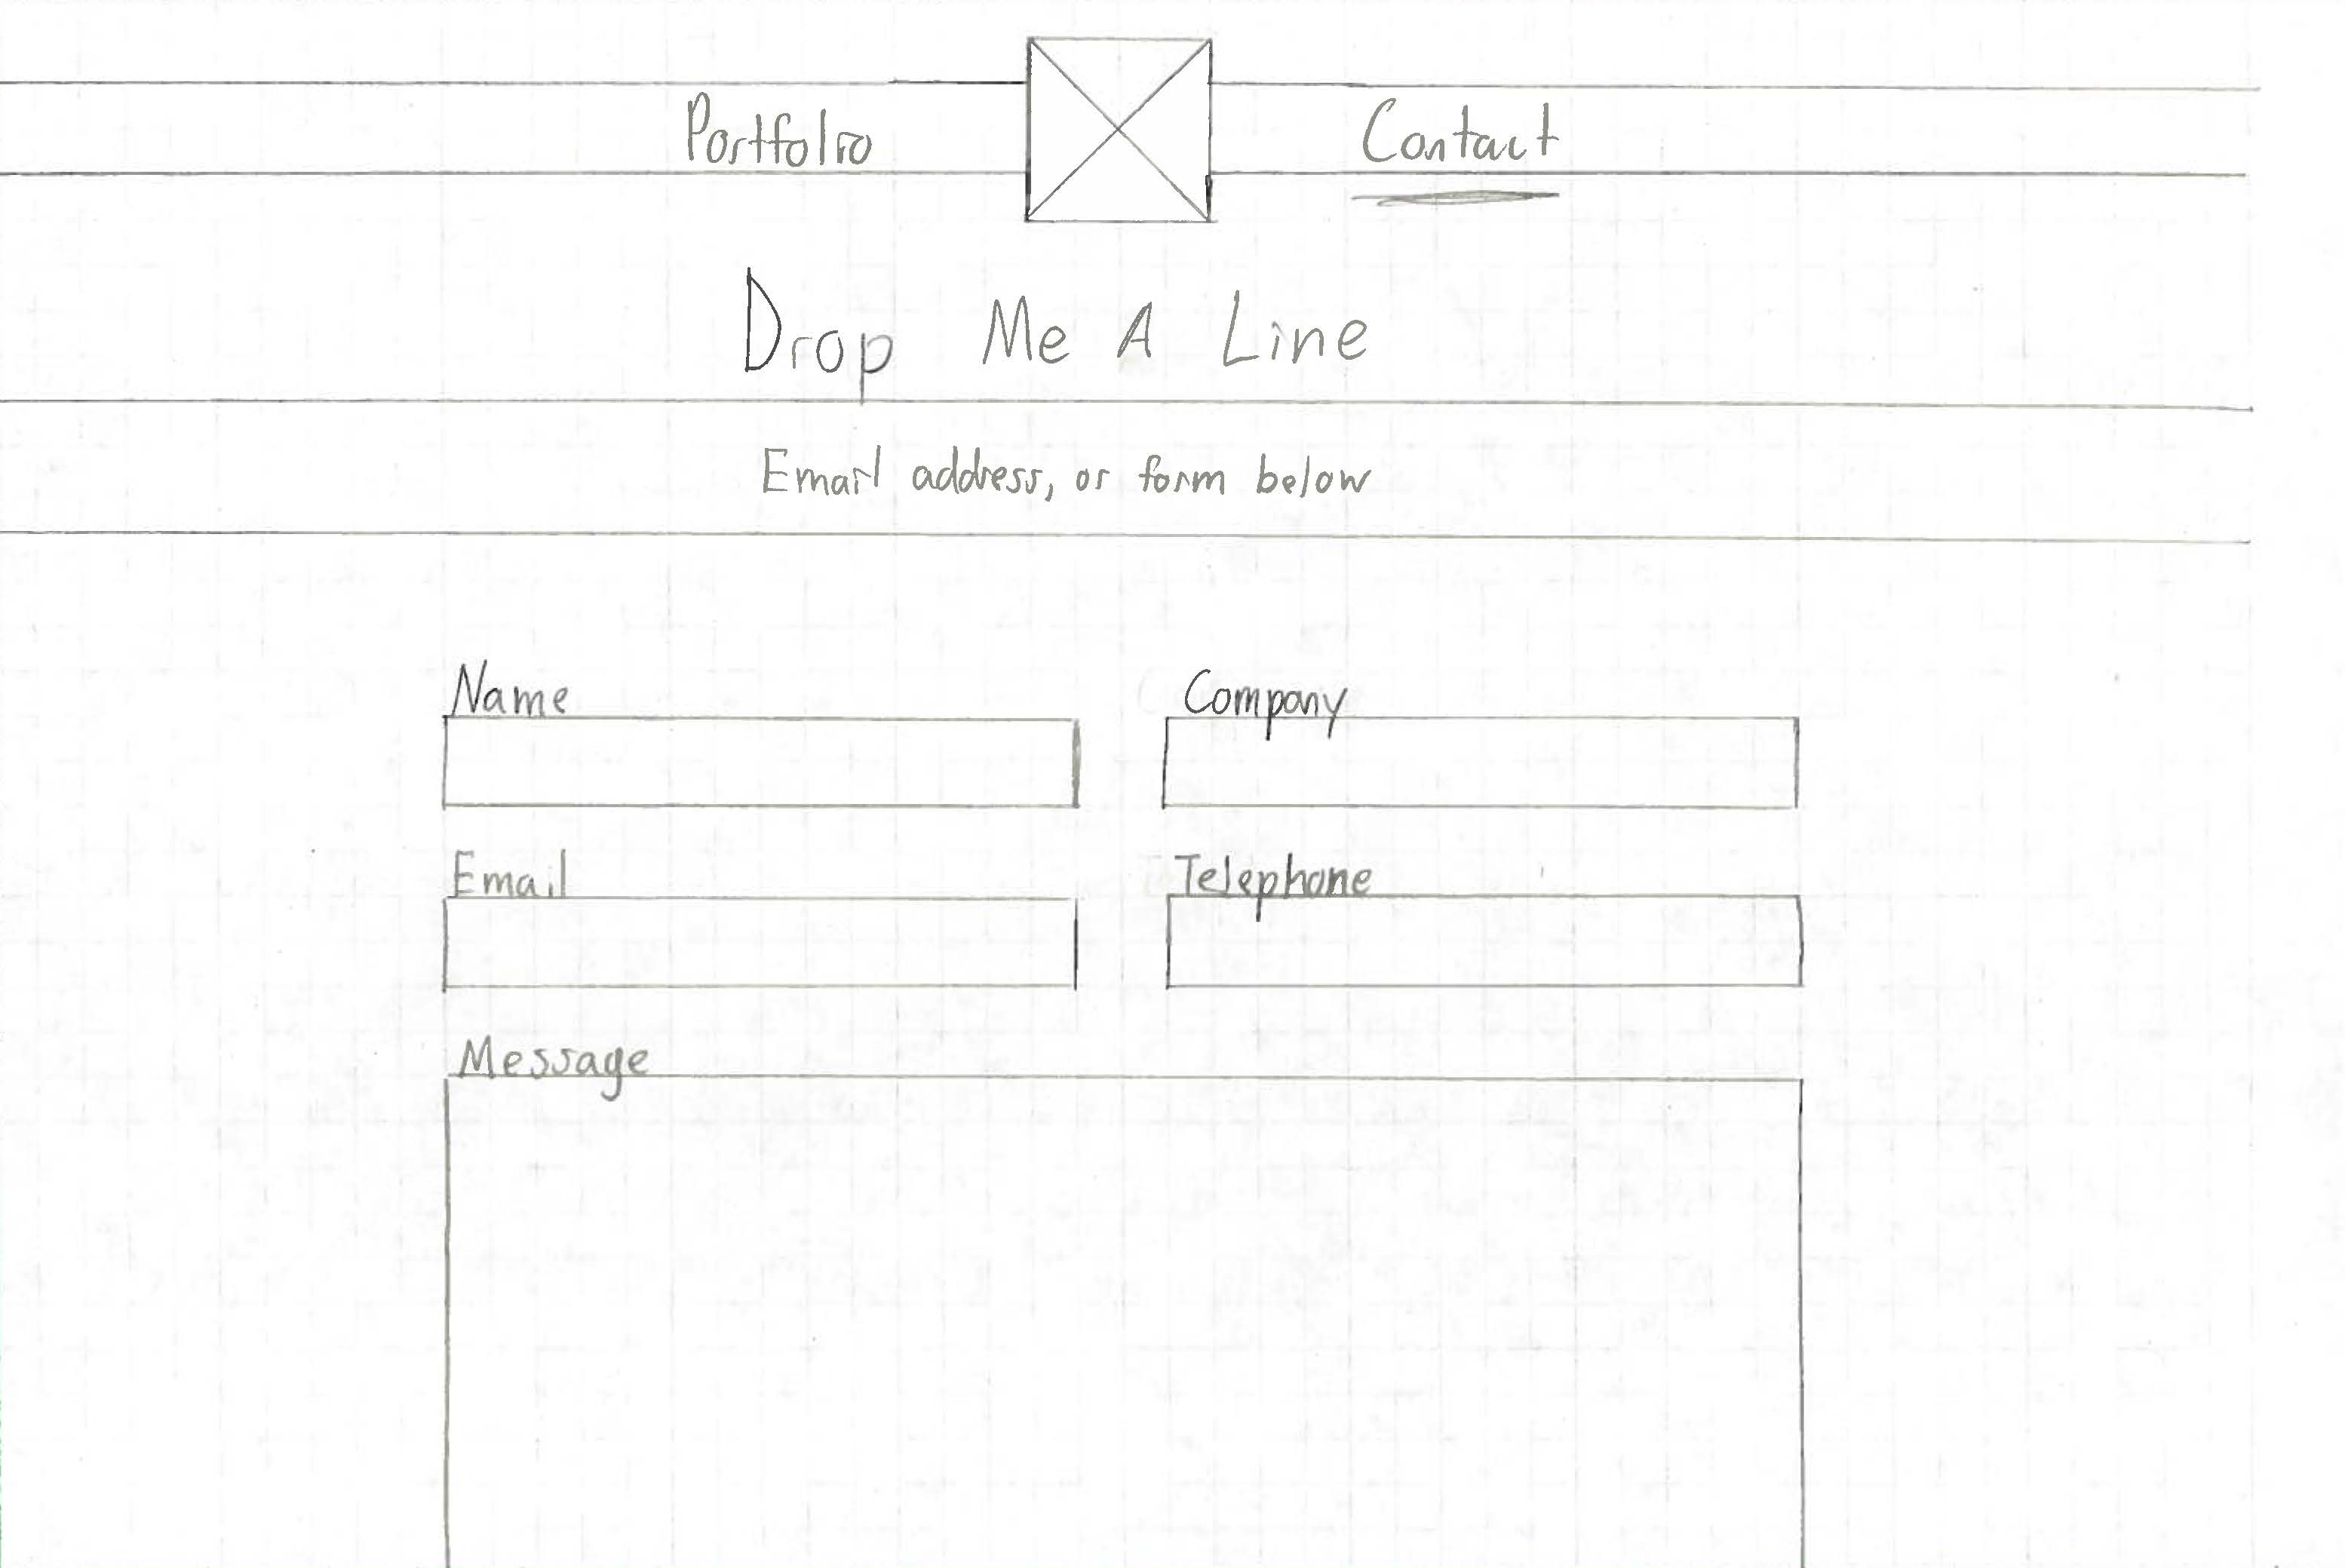 Portfolio Contact
Drop Me A Line
Email address, or form below
Name Company
Email Telephone
Message